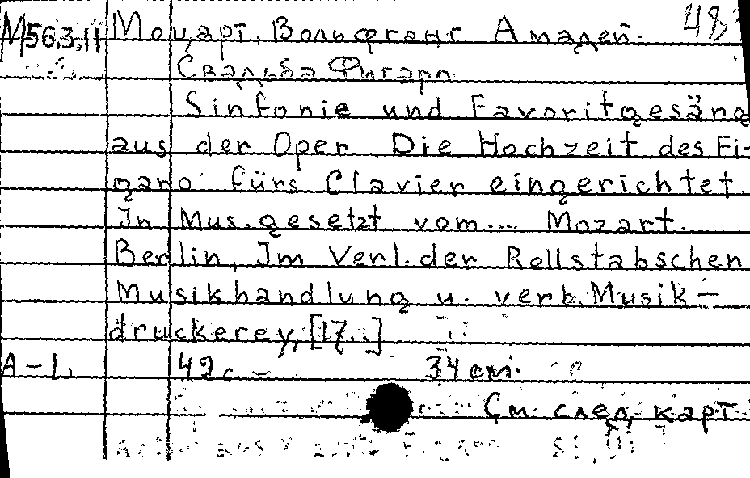 М563.11 Моцарт, Вольфганг Амадей.
Свадьба Фигаро
Sinfonie und Favoritgesäng
aus der Oper Die Hochzeit des Fi-
garo fürs Clavier eingerichtet.
In Mus. gesetzt vom... Mozart.
Berlin, Im Verl. der Rellstabschen
Musikhandlung u. verb. Musik-
druckerey, [17..]
A-L 42 c. 34 cm.
См. след. карт.